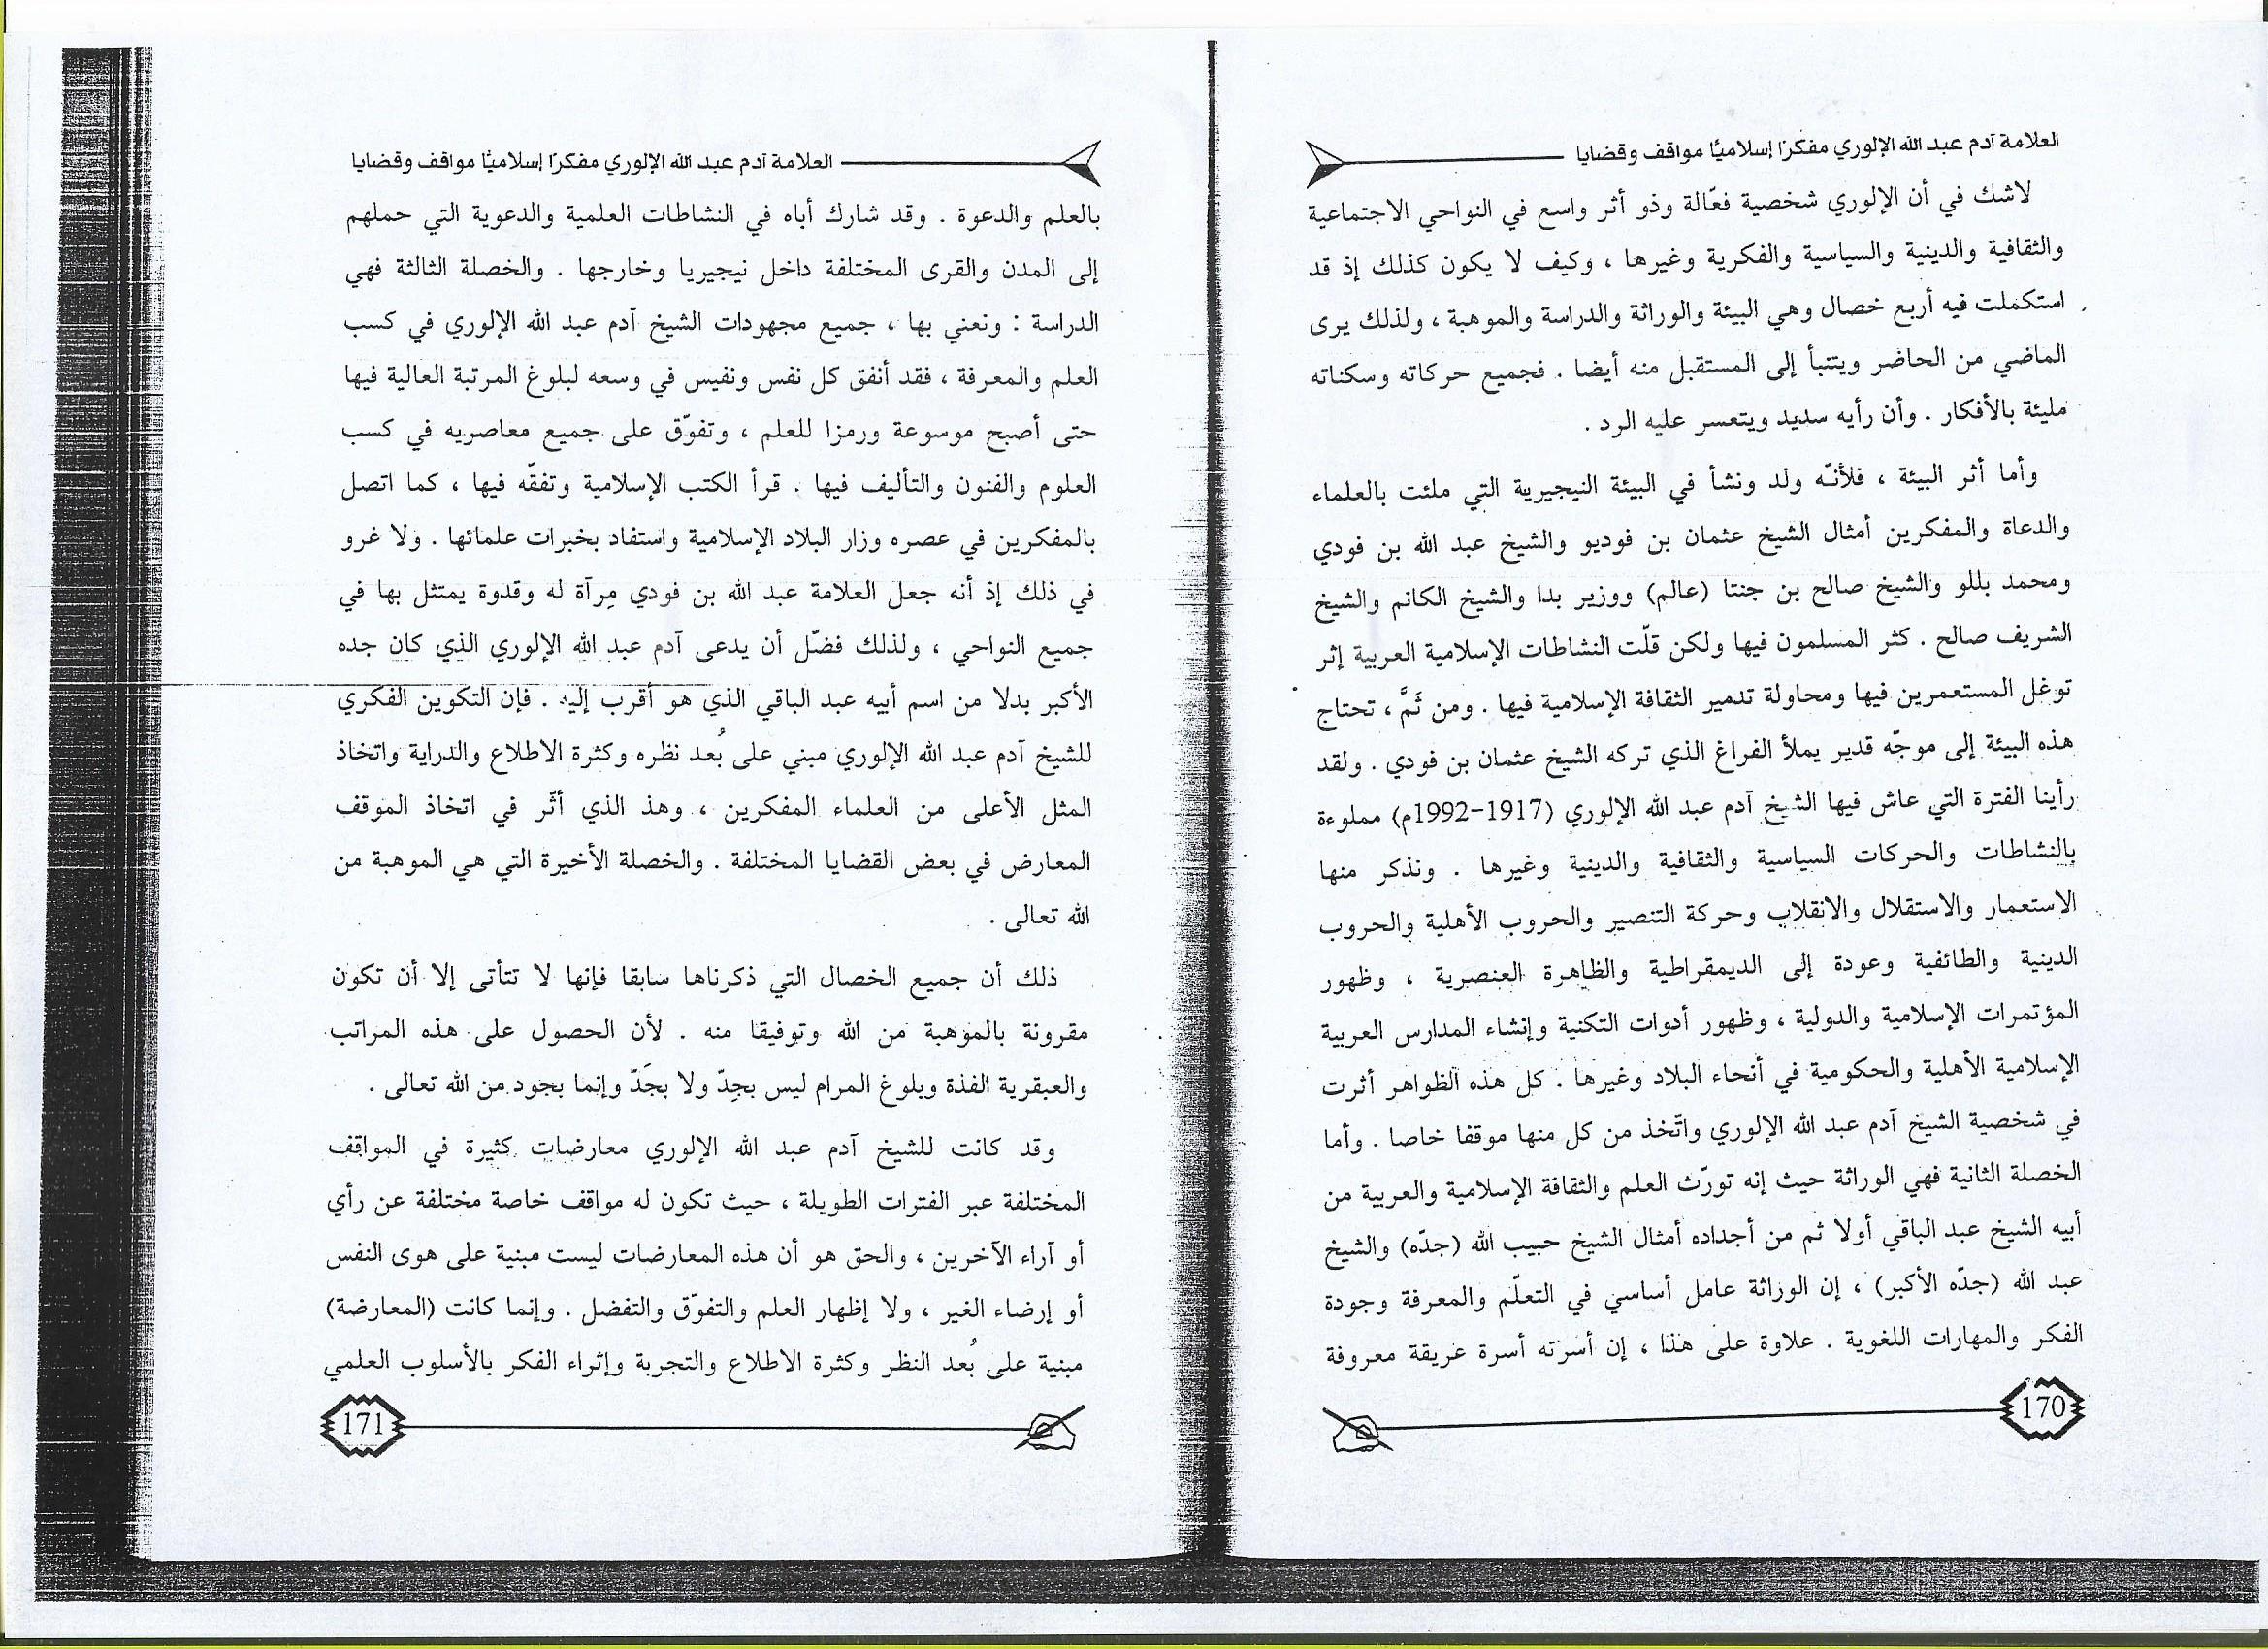 العلامة آدم عبد الله الإلوري مفكرًا إسلاميًا مواقف وقضايا
لاشك في أن الإلوري شخصية فعّالة وذو أثر واسع في النواحي الاجتماعية
والثقافية والدينية والسياسية والفكرية وغيرها ، وكيف لا يكون كذلك إذ قد
استكملت فيه أربع خصال وهي البيئة والوراثة والدراسة والموهبة ، ولذلك يرى
الماضي من الحاضر ويتنبأ إلى المستقبل منه أيضا . فجميع حركاته وسكناته
مليئة بالأفكار . وأن رأيه سديد ويتعسر عليه الرد .
وأما أثر البيئة ، فلأنّه ولد ونشأ في البيئة النيجيرية التي ملئت بالعلماء
والدعاة والمفكرين أمثال الشيخ عثمان بن فوديو والشيخ عبد الله بن فودي
ومحمد بللو والشيخ صالح بن جنتا (عالم) ووزير بدا والشيخ الكانم والشيخ
الشريف صالح . كثر المسلمون فيها ولكن قلّت النشاطات الإسلامية العربية إثر
توغل المستعمرين فيها ومحاولة تدمير الثقافة الإسلامية فيها . ومن ثَمَّ ، تحتاج
هذه البيئة إلى موجّه قدير يملأ الفراغ الذي تركه الشيخ عثمان بن فودي . ولقد
رأينا الفترة التي عاش فيها الشيخ آدم عبد الله الإلوري (1917-1992م) مملوءة
بالنشاطات والحركات السياسية والثقافية والدينية وغيرها . ونذكر منها
الاستعمار والاستقلال والانقلاب وحركة التنصير والحروب الأهلية والحروب
الدينية والطائفية وعودة إلى الديمقراطية والظاهرة العنصرية ، وظهور
المؤتمرات الإسلامية والدولية ، وظهور أدوات التكنية وإنشاء المدارس العربية
الإسلامية الأهلية والحكومية في أنحاء البلاد وغيرها . كل هذه الظواهر أثرت
في شخصية الشيخ آدم عبد الله الإلوري واتّخذ من كل منها موقفا خاصا . وأما
الخصلة الثانية فهي الوراثة حيث إنه تورّث العلم والثقافة الإسلامية والعربية من
أبيه الشيخ عبد الباقي أولا ثم من أجداده أمثال الشيخ حبيب الله (جدّه) والشيخ
عبد الله (جدّه الأكبر) ، إن الوراثة عامل أساسي في التعلّم والمعرفة وجودة
الفكر والمهارات اللغوية . علاوة على هذا ، إن أسرته أسرة عريقة معروفة
170
العلامة آدم عبد الله الإلوري مفكرًا إسلاميًا مواقف وقضايا
بالعلم والدعوة . وقد شارك أباه في النشاطات العلمية والدعوية التي حملهم
إلى المدن والقرى المختلفة داخل نيجيريا وخارجها . والخصلة الثالثة فهي
الدراسة : ونعني بها ، جميع مجهودات الشيخ آدم عبد الله الإلوري في كسب
العلم والمعرفة ، فقد أنفق كل نفس ونفيس في وسعه لبلوغ المرتبة العالية فيها
حتى أصبح موسوعة ورمزا للعلم ، وتفوّق على جميع معاصريه في كسب
العلوم والفنون والتأليف فيها . قرأ الكتب الإسلامية وتفقّه فيها ، كما اتصل
بالمفكرين في عصره وزار البلاد الإسلامية واستفاد بخبرات علمائها . ولا غرو
في ذلك إذ أنه جعل العلامة عبد الله بن فودي مِرآة له وقدوة يمتثل بها في
جميع النواحي ، ولذلك فضّل أن يدعى آدم عبد الله الإلوري الذي كان جده
الأكبر بدلا من اسم أبيه عبد الباقي الذي هو أقرب إليه . فإن التكوين الفكري
للشيخ آدم عبد الله الإلوري مبني على بُعد نظره وكثرة الاطلاع والدراية واتخاذ
المثل الأعلى من العلماء المفكرين ، وهذ الذي أثّر في اتخاذ الموقف
المعارض في بعض القضايا المختلفة . والخصلة الأخيرة التي هي الموهبة من
الله تعالى .
ذلك أن جميع الخصال التي ذكرناها سابقا فإنها لا تتأتى إلا أن تكون
مقرونة بالموهبة من الله وتوفيقا منه . لأن الحصول على هذه المراتب
والعبقرية الفذة وبلوغ المرام ليس بجِدّ ولا بجَدّ وإنما بجود من الله تعالى .
وقد كانت للشيخ آدم عبد الله الإلوري معارضات كثيرة في المواقف
المختلفة عبر الفترات الطويلة ، حيث تكون له مواقف خاصة مختلفة عن رأي
أو آراء الآخرين ، والحق هو أن هذه المعارضات ليست مبنية على هوى النفس
أو إرضاء الغير ، ولا إظهار العلم والتفوّق والتفضل . وإنما كانت (المعارضة)
مبنية على بُعد النظر وكثرة الاطلاع والتجربة وإثراء الفكر بالأسلوب العلمي
171